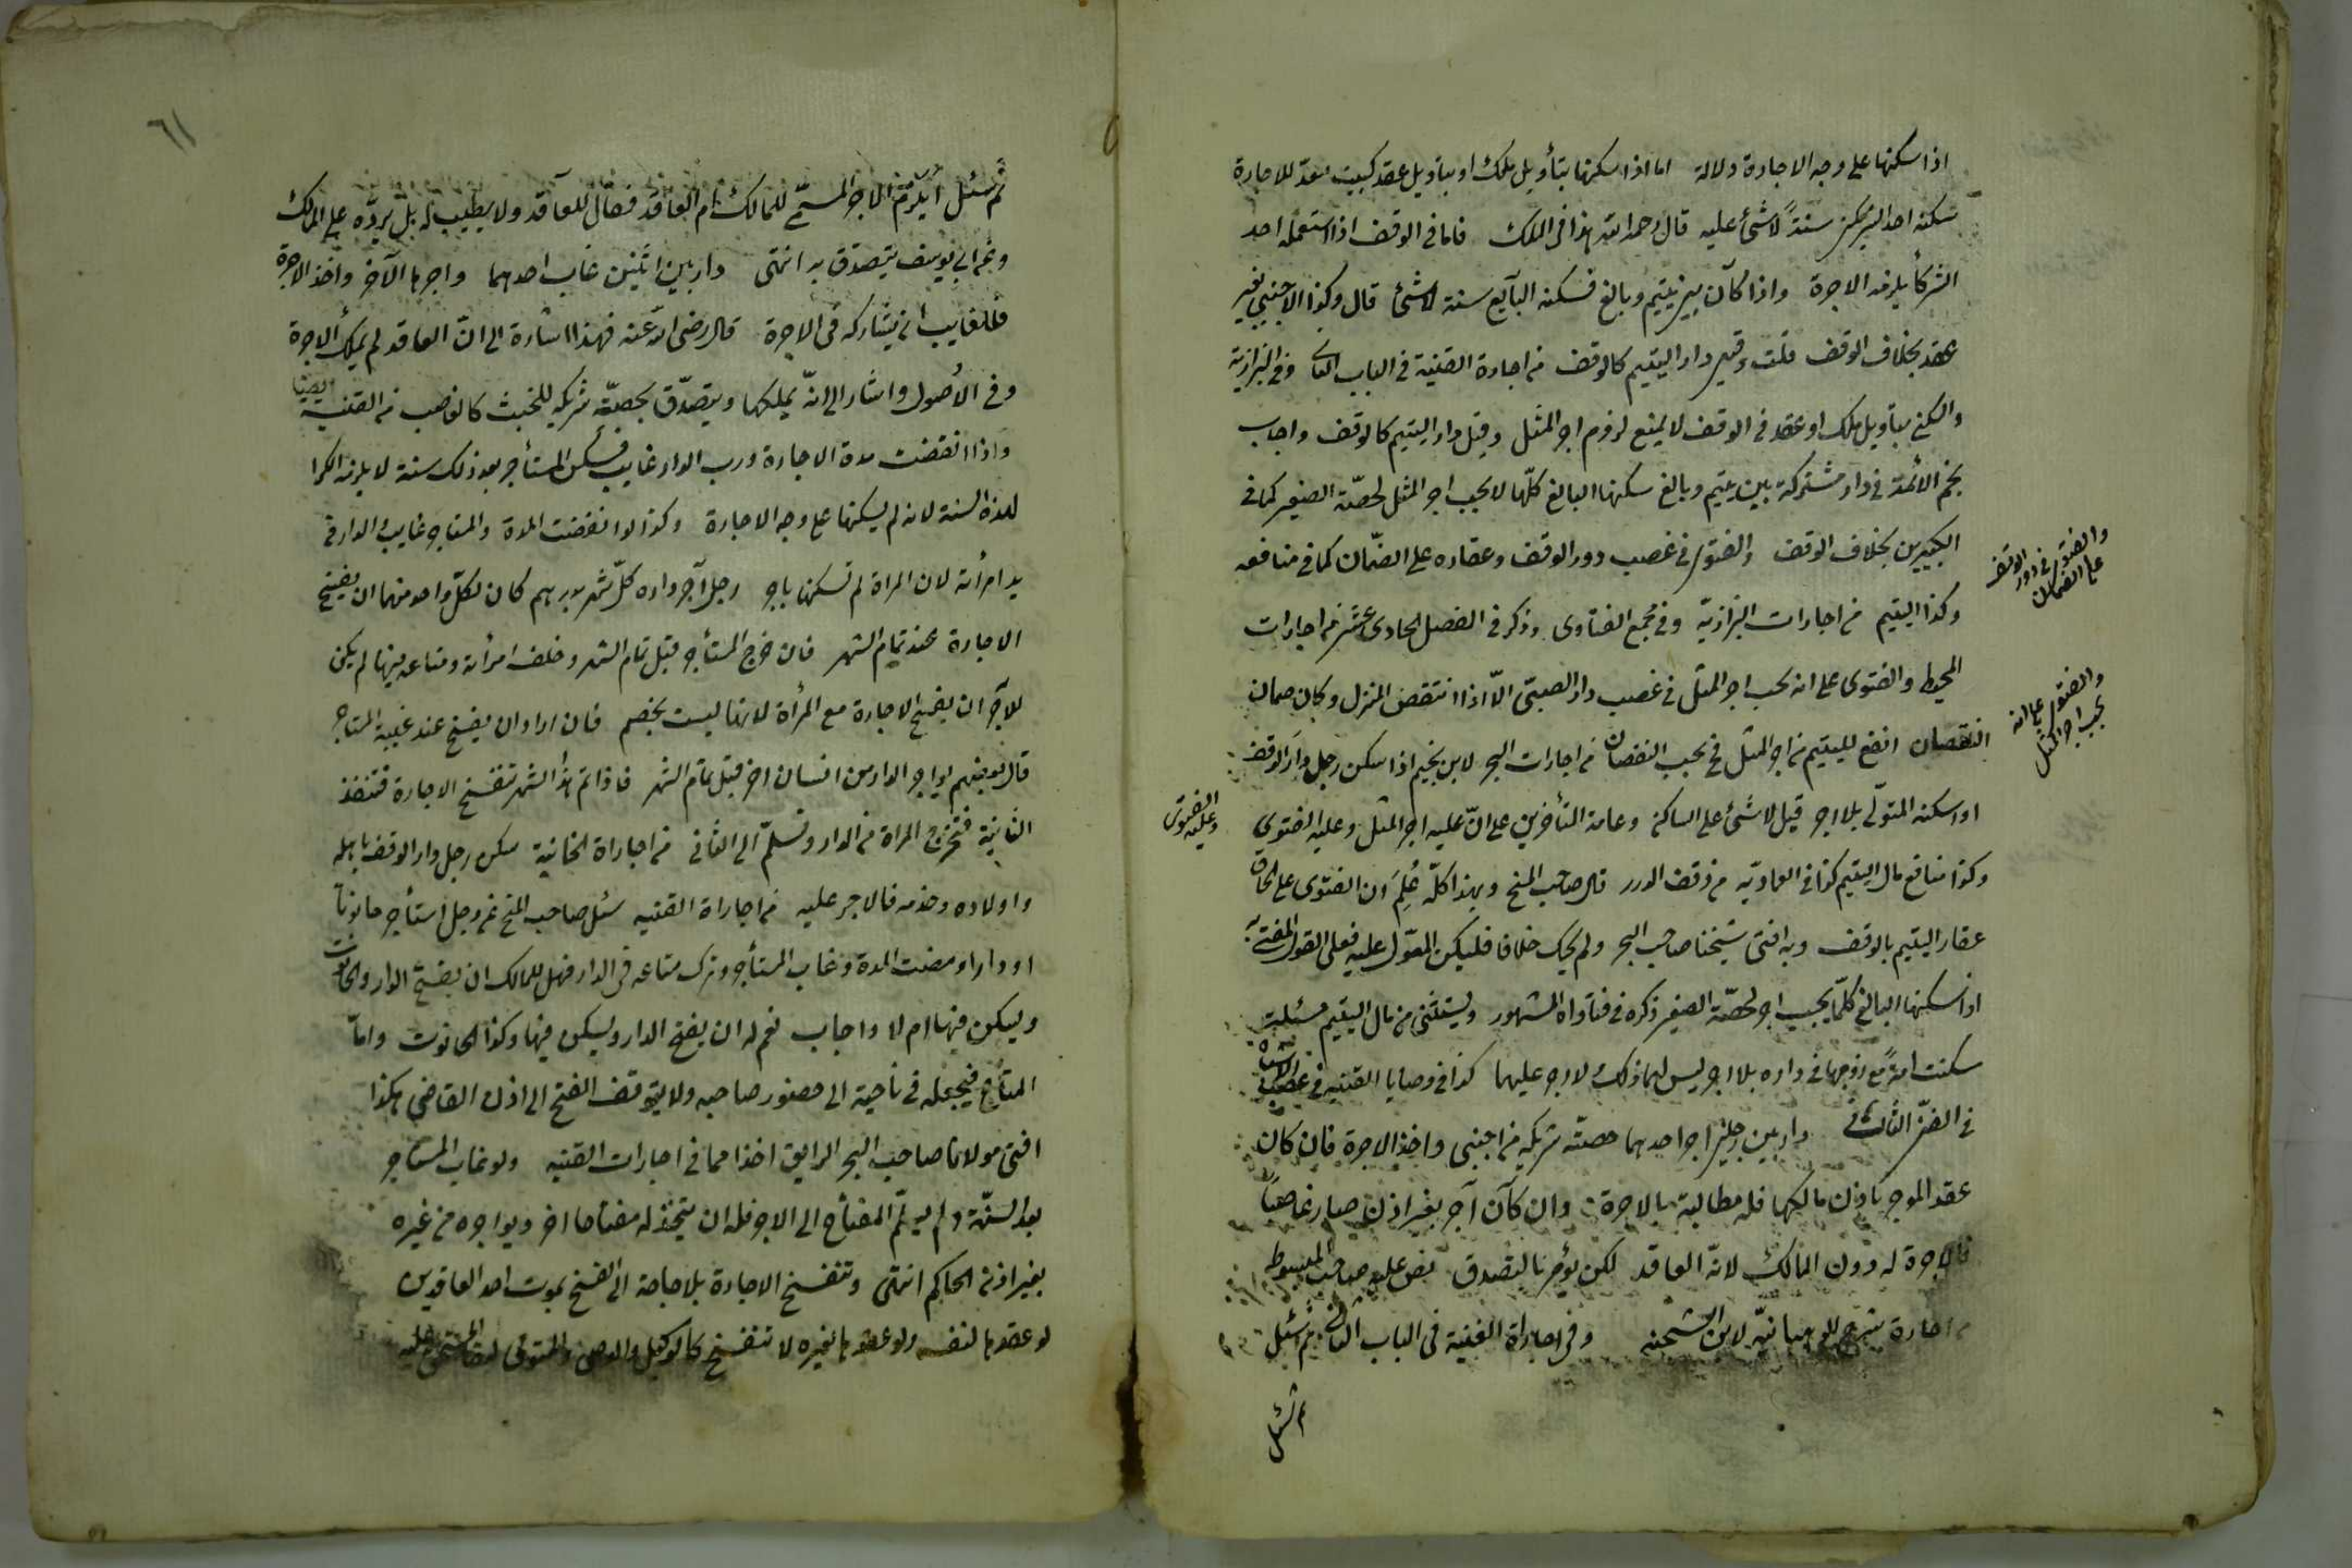 اذا سكنها على وجه الاجارة دلالة اما اذا سكنها بتأويل ملك او بتاويل عقد كبيت معدّ للاجارة
سكنه احد الشريكين سنةً لا شئ عليه قال رحمه الله هذا فى الملك فاما فى الوقف اذا استعمله احد
الشركأ يلزمه الاجرة واذا كان بين يتيم وبالغ فسكنه البالغ سنة لا شئ قال وكذا الاجنبى بغير
عقد بخلاف الوقف قلت وقيل دار اليتيم كالوقف من اجارة القنية فى الباب الثانى وفى البزازية
والسكنى بتاويل ملك او عقد فى الوقف لا يمنع لزوم اجر المثل وقيل دار اليتيم كالوقف واجاب
نجم الأئمة فى دار مشتركة بين يتيم وبالغ سكنها البالغ كلّها لا يجب اجر المثل لحصّة الصغير كما فى
الكبيرين بخلاف الوقف والفتوى فى غصب دور الوقف وعقاره على الضّمان كما فى منافعه
وكذا اليتيم من اجارات البزازيّة وفى مجمع الفتاوى وذكر فى الفصل الحادى عشر من اجارات
المحيط والفتوى على انه يجب اجر المثل فى غصب دار الصبىّ الّا اذا انتقض المنزل وكان ضمان
النقصان انفع لليتيم من اجر المثل فح يجب النقصان من اجارات البحر لابن نجيم اذا سكن رجل دار الوقف
او اسكنه المتولّى بلا اجر قيل لا شئ على الساكن وعامة المتأخرين على انّ عليه اجر المثل وعليه الفتوى
وكذا منافع مال اليتيم كذا فى العماديّه من وقف الدرر قال صاحب المنح وبهذا كلّه عُلِمَ ان الفتوى على الحاق
عقار اليتيم بالوقف وبه افتى شيخنا صاحب البحر ولم يحك خلافا فليكن المعوّل عليه فعلى القول المفتى به
اذا سكنها البالغ كلّها يجب اجر لحصّة الصغير ذكره فى فتاواه المشهور ويستثنى من مال اليتيم مسئلة
سكنت امهُ مع زوجها فى داره بلا اجر ليس لهما ذلك ولا اجر عليهما كذا فى وصايا القنيه فى غصب الاشباه
فى الفنّ الثانى دار بين رجلين اجر احدهما حصّة شريكه من اجنبى واخذ الاجرة فان كان
عقد الموجر باذن مالكها فله مطالبة بالاجرة وان كان آجر بغير اذن صار غاصباً
فالاجرة له دون المالك لانّه العاقد لكن يؤمر بالتصدق نص عليه صاحب المبسوط
من اجارة شرح الوهبانيّه لابن الشحنه وفى اجاراة القنية فى الباب الثانى ثم سئل
ثم سئل
والفتوى فى دور الوقف
على الضمان
والفتوى على انه
يجب اجر المثل
وعليه الفتوى
٦١
ثم سئل أيلزم الاجر المسمّى للمالك ام العاقد فقال للعاقد ولا يطيب له بل يردّه على المالك
وعن ابى يوسف يتصدق به انتهى دار بين اثنين غاب احدهما واجرها الآخر واخذ الاجرة
فللغايب ان يشاركه فى الاجرة قال رضى الله عنه فهذا اشارة الى انّ العاقد لم يملك الاجرة
وفى الأصول واشار الى انّه يملكها ويتصدّق بحصّة شريكه للخبث كالغاصب من القنية ايضا
واذا انقضت مدة الاجارة ورب الدار غايب فسكن المستأجر بعد ذلك سنة لا يلزمه الكرا
لهذه السنة لانه لم يسكنها على وجه الاجارة وكذا لو انقضت المدة والمستاجر غايب والدار فى
يد امرأته لان المراة لم تسكن باجر رجل آجر داره كلّ شهر بدرهم كان لكلّ واحد منهما ان يفسخ
الاجارة عند تمام الشهر فان خرج المستأجر قبل تمام الشهر وخلف امرأته ومتاعه فيها لم يكن
للآجر ان يفسخ الاجارة مع المرأة لانها ليست بخصم فان اراد ان يفسخ عند غيبة المستاجر
قال بعضهم يواجر الدار من انسان اخر قبل تمام الشهر فاذا تم هذا الشهر تنفسخ الاجارة فتنفذ
الثانية فتخرج المراة من الدار وتسلّم الى الثانى من اجاراة الخانية سكن رجل دار الوقف باهله
واولاده وخدمه فالاجر عليه من اجاراة القنيه سئل صاحب المنح عن رجل استأجر حانوتاً
او دارا ومضت المدة وغاب المستأجر وترك متاعه فى الدار فهل للمالك ان يفتح الدار والحانوت
ويسكن فيها ام لا واجاب نعم له ان يفتح الدار ويسكن فيها وكذا الحانوت وامّا
المتاع فيجعله فى ناحية الى حضور صاحبه ولا يتوقف الفتح الى اذن القاضى هكذا
افتى مولانا صاحب البحر الرايق اخذا مما فى اجارات القنيه ولو غاب المستاجر
بعد السنة ولم يسلّم المفتاح الى الاجر فله ان يتخذ له مفتاحا اخر ويواجره من غيره
بغير اذن الحاكم انتهى وتنفسخ الاجارة بلا حاجة الى الفسخ بموت احد العاقدين
لو عقدها لنفسه ولو عقدها لغيره لا تنفسخ كالوكيل والوصى والمتولى